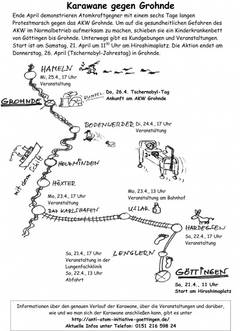 Karawane gegen Grohnde
Ende April demonstrieren Atomkraftgegner mit einem sechs Tage langen
Protestmarsch gegen das AKW Grohnde. Um auf die gesundheitlichen Gefahren des
AKW im Normalbetrieb aufmerksam zu machen, schieben sie ein Kinderkrankenbett
von Göttingen bis Grohnde. Unterwegs gibt es Kundgebungen und Veranstaltungen.
Start ist am Samstag, 21. April um 11 Uhr am Hiroshimaplatz. Die Aktion endet am
Donnerstag, 26. April (Tschernobyl-Jahrestag) in Grohnde.
HAMELN
Mi, 25.4., 17 Uhr
Veranstaltung
RUMPEL
GROHNDE
Do, 26.4. Tschernobyl-Tag
Ankunft am AKW Grohnde
BODENWERDER
Di, 24.4., 17 Uhr
Veranstaltung
HOLZMINDEN
mit dem Schiff
HÖXTER
Mo, 23.4., 17 Uhr
Veranstaltung
BAD KARLSHAFEN
Mo, 23.4., 13 Uhr
Veranstaltung am Bahnhof
USLAR
HARDEGSEN
So, 22.4., 17 Uhr
Veranstaltung
Sa, 21.4., 17 Uhr
Veranstaltung in der
Lungenfachklinik
So, 22.4., 12 Uhr
Abfahrt
LENGLERN
GÖTTINGEN
Sa, 21.4., 11 Uhr
Start im Hiroshimaplatz
Informationen über den genauen Verlauf der Karawane, über die Veranstaltungen und darüber,
wie und wo man sich der Karawane anschließen kann, gibt es unter
http://anti-atom-initiative-goettingen.de/
Aktuelle Infos unter Telefon: 0151 216 598 24